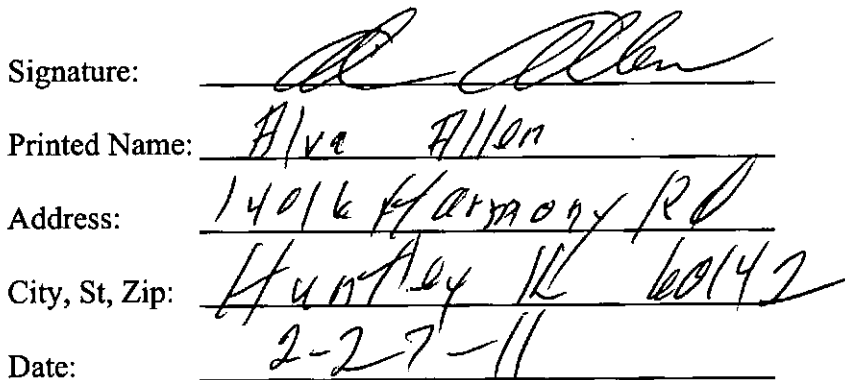 Signature: Al Allen
Printed Name: Alva Allen
Address: 14016 Harmony Rd
City, St, Zip: Huntley IL 60142
Date: 2-27-11